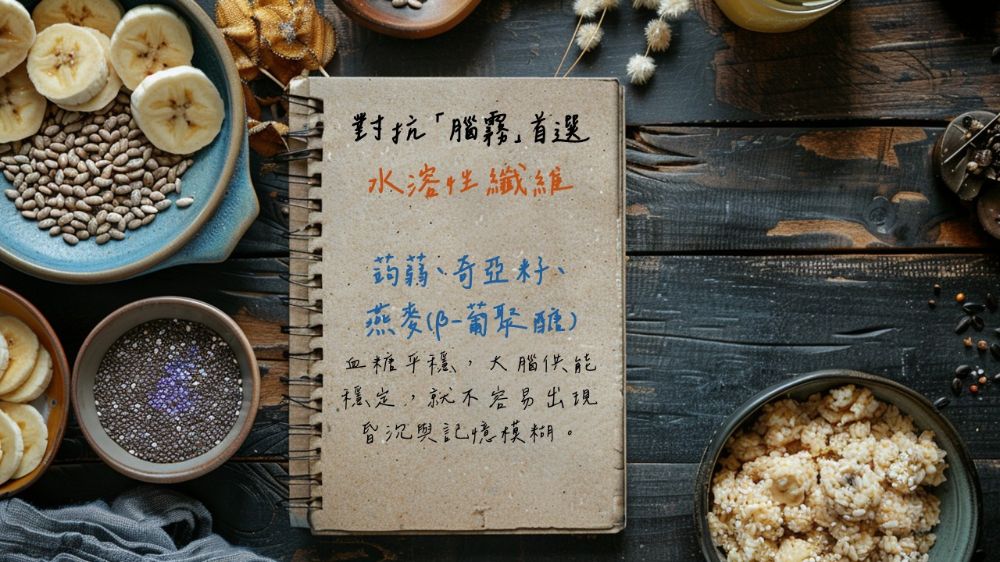 對抗「腦霧」首選
水溶性纖維
蒟蒻、奇亞籽、
燕麥(β-葡聚醣)
血糖平穩，大腦供能
穩定，就不容易出現
昏沉與記憶模糊。